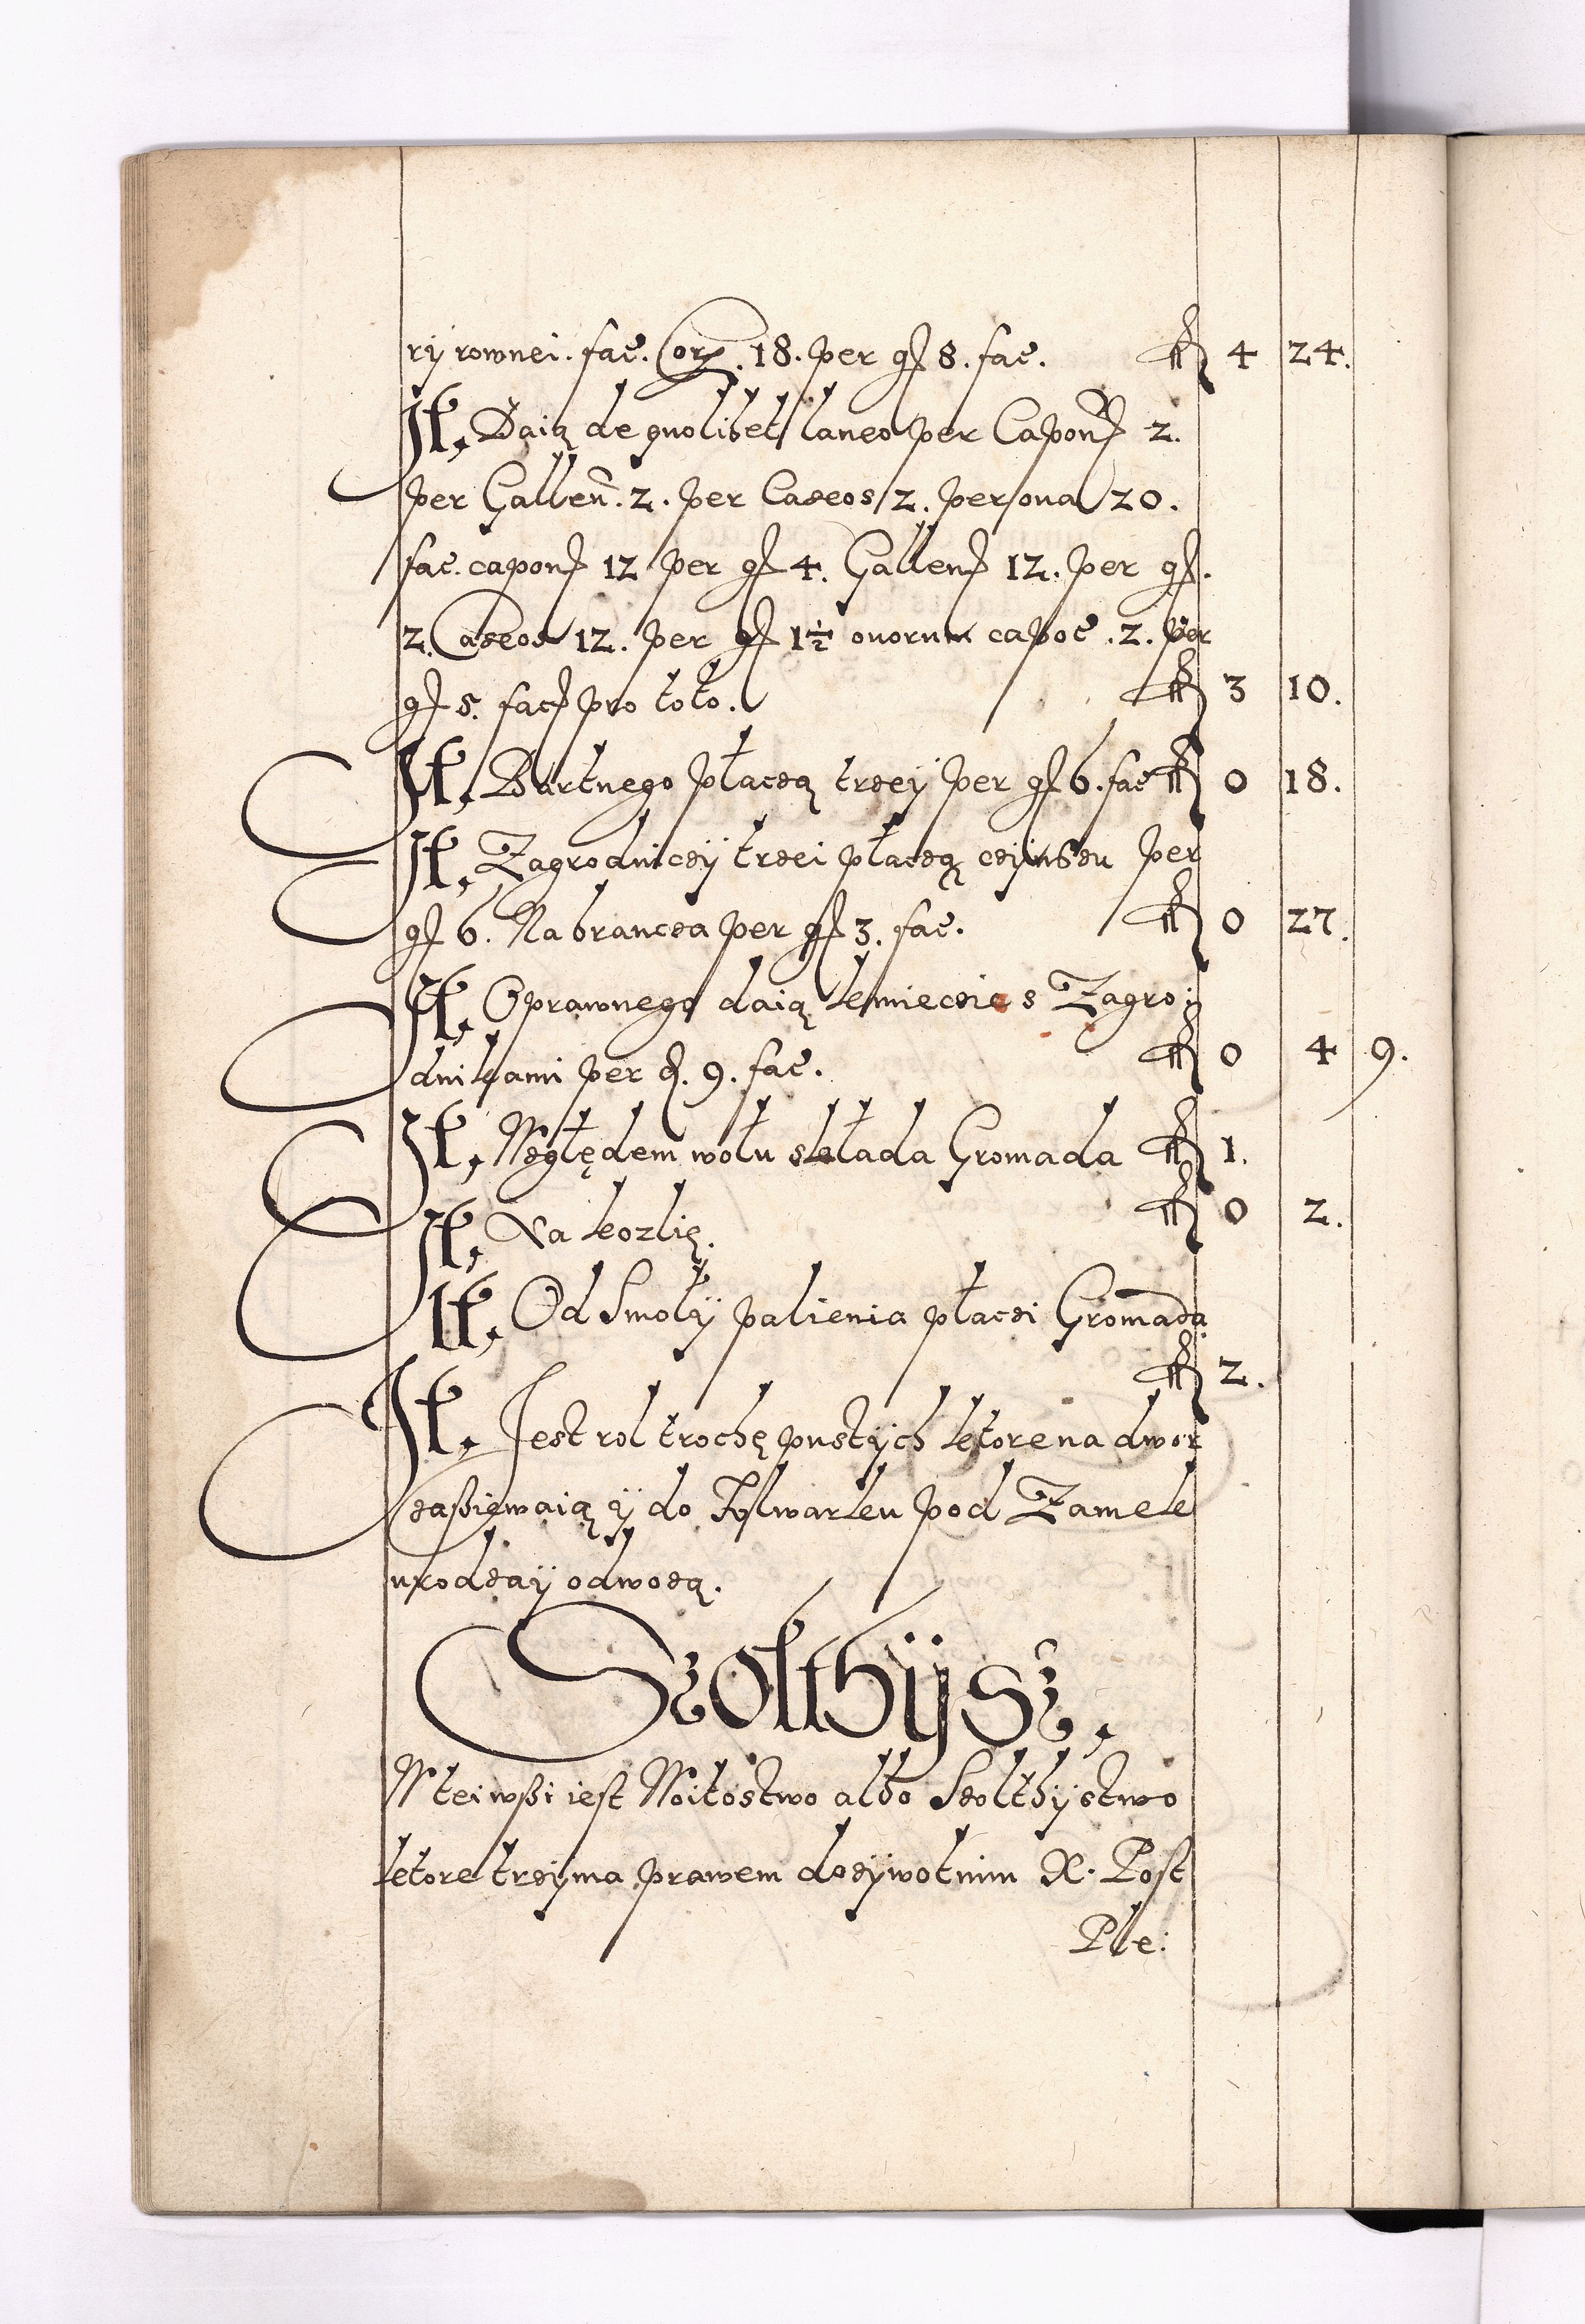 ry rownei. fac. Cor. 18. per gr 8. fac. fl 4 24.
It. Daią de quolibet laneo per Capon. 2.
per Gallen. 2. per Caseos 2. per ova 20.
fac. capon. 12 per gr 4. Gallen. 12. per gr.
2. Caseos 12. per gr 1½ ovorum capoc. 2. per
gr 5. fac. pro toto. fl 3 10.
It. Bartnego płaczą trzey per gr 6. fac fl 0 18.
It. Zagrodniczy trzei płaczą czynszu per
gr 6. Na brancza per gr 3. fac. fl 0 27.
It. Oprawnego daią kmieczie s Zagro:
dnikami per d. 9. fac. fl 0 4 9.
It. Względem wołu składa Gromada fl 1.
It. Na kozlię. fl 0 2.
It. Od Smoły palienia płaczi Gromada
fl 2.
It. Jest rol trochę pustych ktore na dwor
zaßiewaią y do Folwarku pod Zamek
urodzay odwożą.
Szolthysz,
W tei wßi iest Woitostwo albo Szolthystwo
ktore trzyma prawem dozywotnim X. Post
Ple: